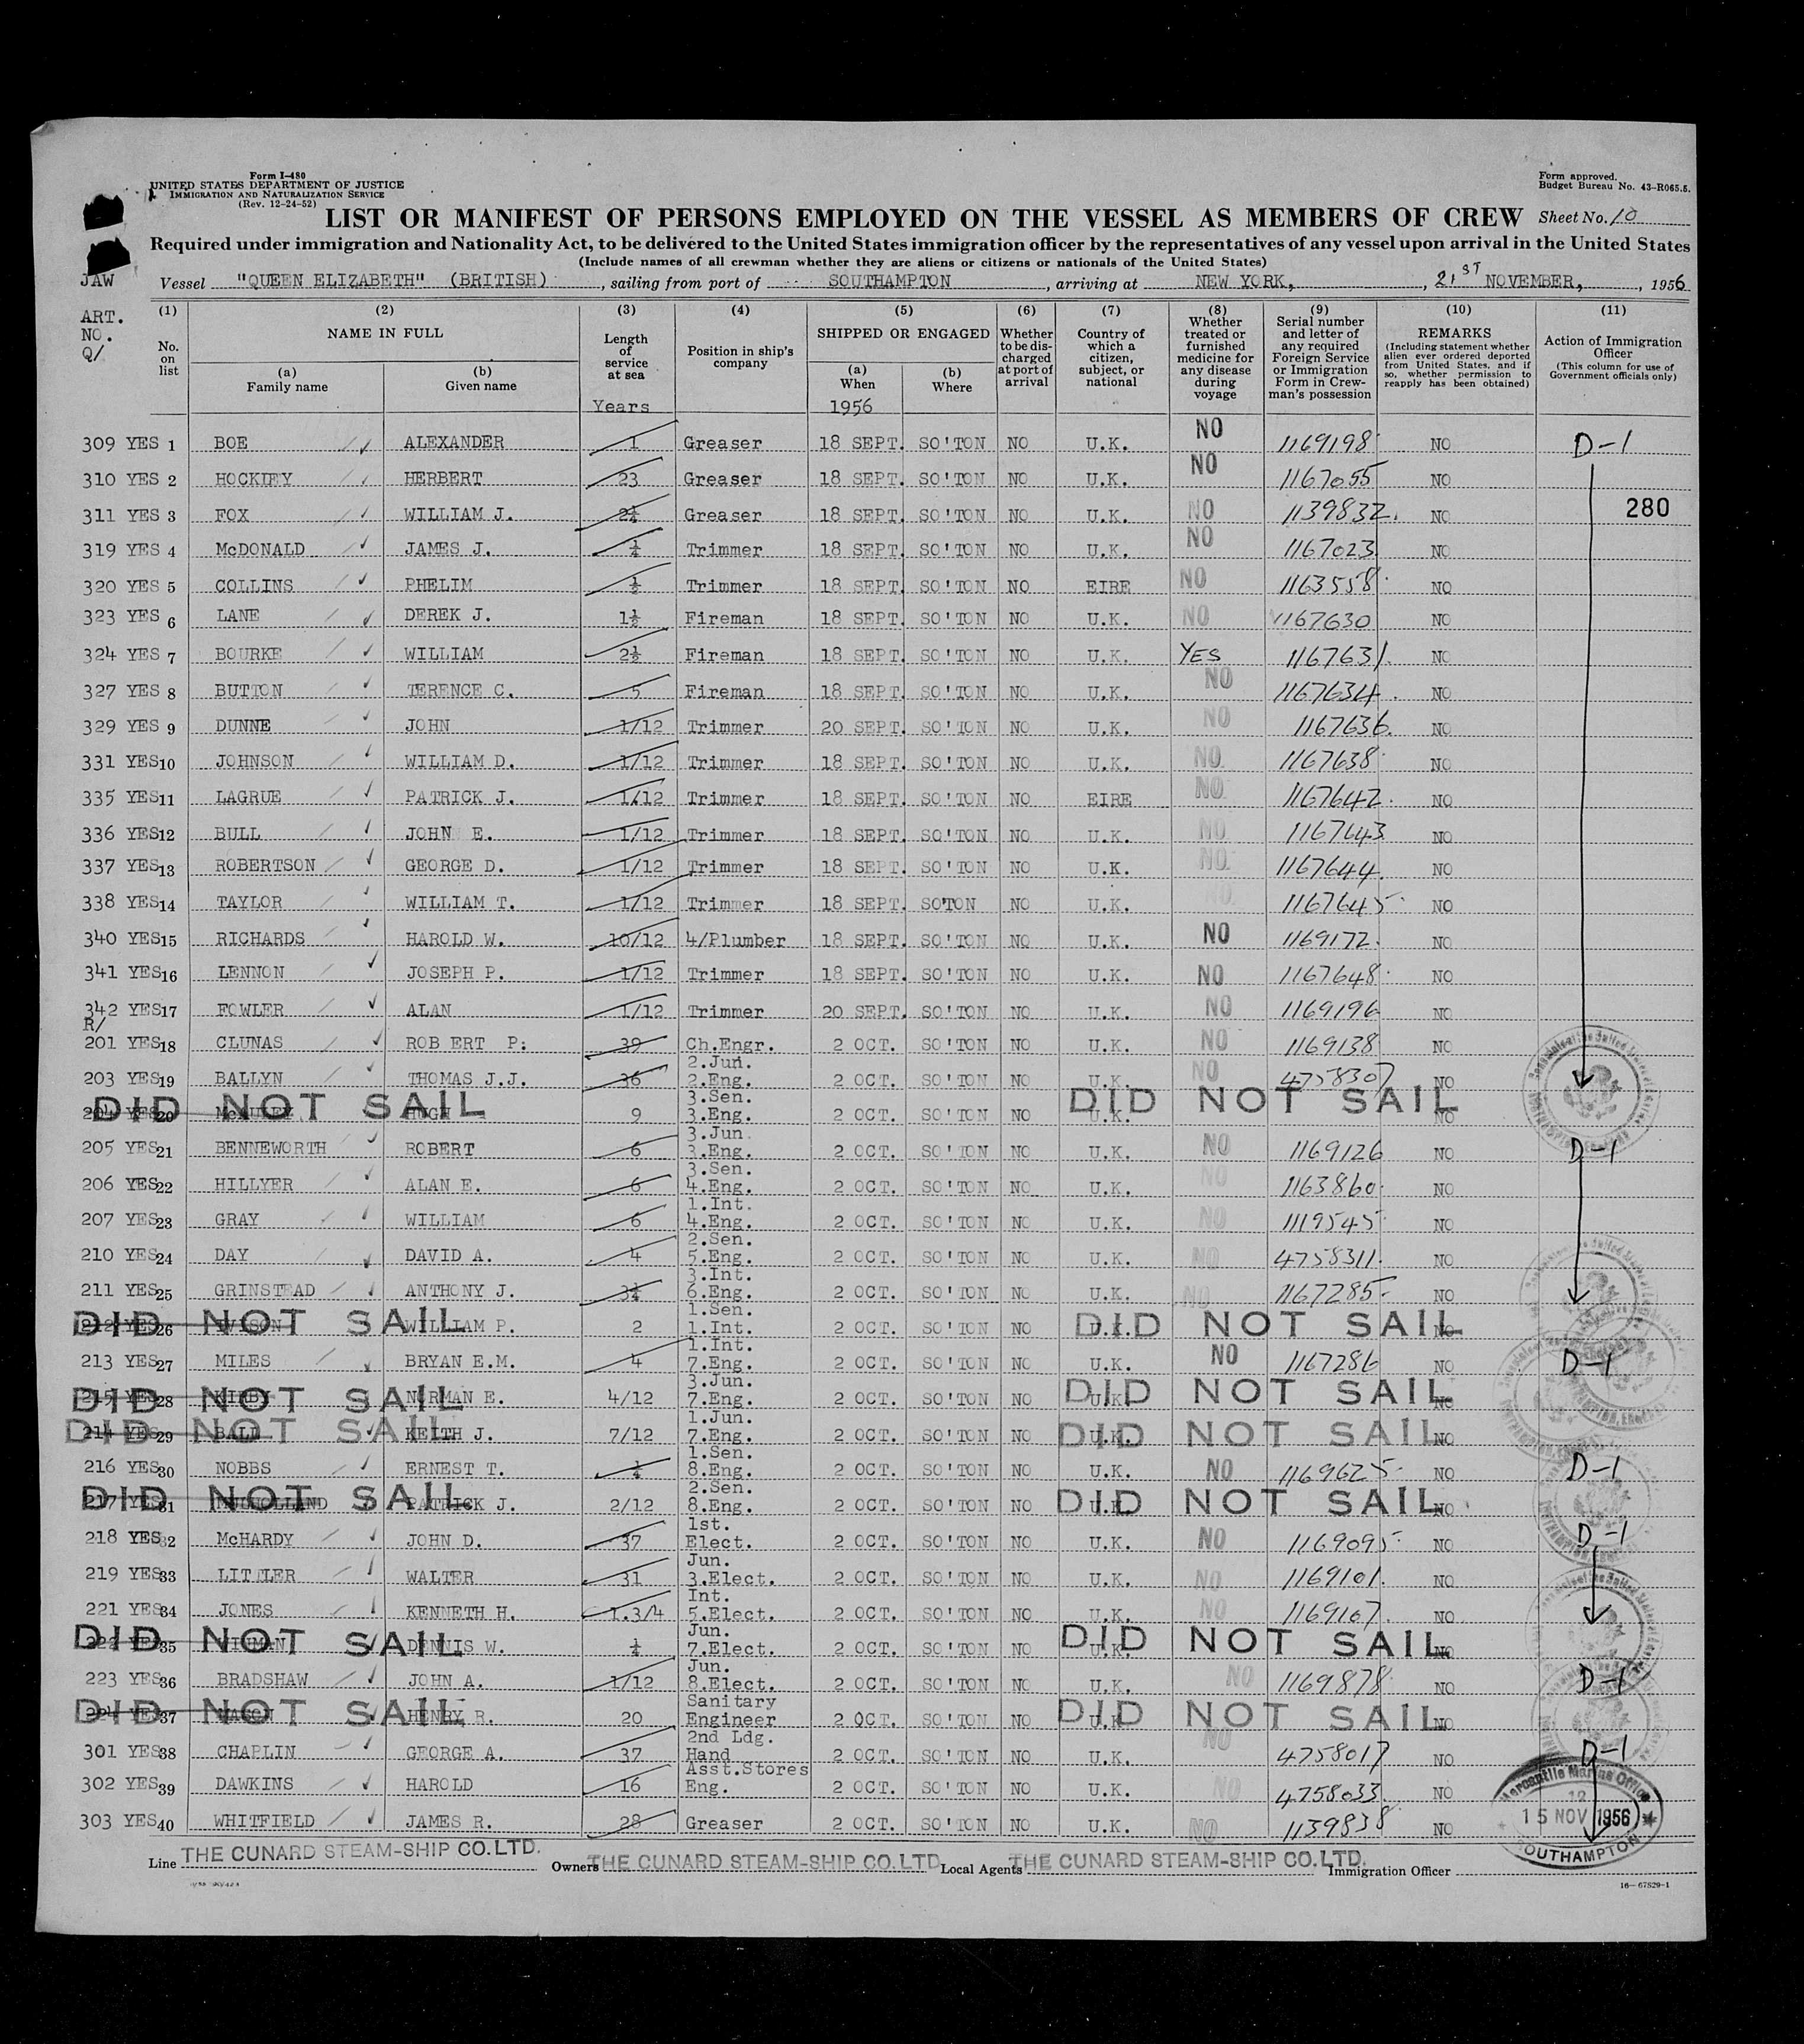 Form I-480
UNITED STATES DEPARTMENT OF JUSTICE
IMMIGRATION AND NATURALIZATION SERVICE
(Rev. 12-24-52)
Form approved.
Budget Bureau No. 43-R065.5.
LIST OR MANIFEST OF PERSONS EMPLOYED ON THE VESSEL AS MEMBERS OF CREW Sheet No. 10
Required under immigration and Nationality Act, to be delivered to the United States immigration officer by the representatives of any vessel upon arrival in the United States
(Include names of all crewman whether they are aliens or citizens or nationals of the United States)
JAW Vessel "QUEEN ELIZABETH" (BRITISH), sailing from port of SOUTHAMPTON, arriving at NEW YORK, 21ST NOVEMBER, 1956
ART. NO. Q/
(1) No. on list
(2) NAME IN FULL (a) Family name (b) Given name
(3) Length of service at sea Years
(4) Position in ship's company
(5) SHIPPED OR ENGAGED (a) When 1956 (b) Where
(6) Whether to be discharged at port of arrival
(7) Country of which a citizen, subject, or national
(8) Whether treated or furnished medicine for any disease during voyage
(9) Serial number and letter of any required Foreign Service or Immigration Form in Crewman's possession
(10) REMARKS (Including statement whether alien ever ordered deported from United States, and if so, whether permission to reapply has been obtained)
(11) Action of Immigration Officer (This column for use of Government officials only)
309 YES 1 BOE ALEXANDER 1 Greaser 18 SEPT. SO'TON NO U.K. NO 1169198 NO D-1
310 YES 2 HOCKIEY HERBERT 23 Greaser 18 SEPT. SO'TON NO U.K. NO 1167055 NO
311 YES 3 FOX WILLIAM J. 2¼ Greaser 18 SEPT. SO'TON NO U.K. NO 1139832. NO 280
319 YES 4 McDONALD JAMES J. ¼ Trimmer 18 SEPT. SO'TON NO U.K. NO 1167023 NO
320 YES 5 COLLINS PHELIM ½ Trimmer 18 SEPT. SO'TON NO EIRE NO 1163558 NO
323 YES 6 LANE DEREK J. 1½ Fireman 18 SEPT. SO'TON NO U.K. NO 1167630 NO
324 YES 7 BOURKE WILLIAM 2½ Fireman 18 SEPT. SO'TON NO U.K. YES 1167631. NO
327 YES 8 BUTTON TERENCE C. 5 Fireman 18 SEPT. SO'TON NO U.K. NO 1167634. NO
329 YES 9 DUNNE JOHN 1/12 Trimmer 20 SEPT. SO'TON NO U.K. NO 1167636. NO
331 YES 10 JOHNSON WILLIAM D. 1/12 Trimmer 18 SEPT. SO'TON NO U.K. NO 1167638 NO
335 YES 11 LAGRUE PATRICK J. 1/12 Trimmer 18 SEPT. SO'TON NO EIRE NO 1167642. NO
336 YES 12 BULL JOHN E. 1/12 Trimmer 18 SEPT. SO'TON NO U.K. NO 1167643 NO
337 YES 13 ROBERTSON GEORGE D. 1/12 Trimmer 18 SEPT. SO'TON NO U.K. NO 1167644. NO
338 YES 14 TAYLOR WILLIAM T. 1/12 Trimmer 18 SEPT. SO'TON NO U.K. NO 1167645 NO
340 YES 15 RICHARDS HAROLD W. 10/12 4/Plumber 18 SEPT. SO'TON NO U.K. NO 1169172. NO
341 YES 16 LENNON JOSEPH P. 1/12 Trimmer 18 SEPT. SO'TON NO U.K. NO 1167648 NO
342 YES 17 FOWLER ALAN 1/12 Trimmer 20 SEPT. SO'TON NO U.K. NO 1169196 NO
R/
201 YES 18 CLUNAS ROBERT P. 39 Ch.Engr. 2 OCT. SO'TON NO U.K. NO 1169138 NO
203 YES 19 BALLYN THOMAS J.J. 36 2.Jun. 2.Eng. 2 OCT. SO'TON NO U.K. NO 4758307 NO
204 YES 20 HUGH 9 3.Sen. 3.Eng. 2 OCT. SO'TON NO U.K. NO DID NOT SAIL DID NOT SAIL
205 YES 21 BENNEWORTH ROBERT 6 3.Jun. 3.Eng. 2 OCT. SO'TON NO U.K. NO 1169126 NO D-1
206 YES 22 HILLYER ALAN E. 6 3.Sen. 4.Eng. 2 OCT. SO'TON NO U.K. NO 1163860 NO
207 YES 23 GRAY WILLIAM 6 1.Int. 4.Eng. 2 OCT. SO'TON NO U.K. NO 1119545 NO
210 YES 24 DAY DAVID A. 4 2.Sen. 5.Eng. 2 OCT. SO'TON NO U.K. NO 4758311. NO
211 YES 25 GRINSTEAD ANTHONY J. 3¼ 3.Int. 6.Eng. 2 OCT. SO'TON NO U.K. NO 1167285 NO
212 YES 26 WILLIAM P. 2 1.Sen. 1.Int. 2 OCT. SO'TON NO U.K. NO DID NOT SAIL DID NOT SAIL
213 YES 27 MILES BRYAN E.M. 4 1.Int. 7.Eng. 2 OCT. SO'TON NO U.K. NO 1167286 NO D-1
215 YES 28 KIRBY NORMAN E. 4/12 3.Jun. 7.Eng. 2 OCT. SO'TON NO U.K. NO DID NOT SAIL DID NOT SAIL
214 YES 29 BALD KEITH J. 7/12 1.Jun. 7.Eng. 2 OCT. SO'TON NO U.K. NO DID NOT SAIL DID NOT SAIL
216 YES 30 NOBBS ERNEST T. ¼ 1.Sen. 8.Eng. 2 OCT. SO'TON NO U.K. NO 1169625 NO D-1
217 YES 31 MULHOLLAND PATRICK J. 2/12 2.Sen. 8.Eng. 2 OCT. SO'TON NO U.K. NO DID NOT SAIL DID NOT SAIL
218 YES 32 McHARDY JOHN D. 37 1st. Elect. 2 OCT. SO'TON NO U.K. NO 1169095 NO D-1
219 YES 33 LITTLER WALTER 31 Jun. 3.Elect. 2 OCT. SO'TON NO U.K. NO 1169101. NO
221 YES 34 JONES KENNETH H. 1.3/4 Int. 5.Elect. 2 OCT. SO'TON NO U.K. NO 1169107. NO
222 YES 35 DENNIS W. ¼ Jun. 7.Elect. 2 OCT. SO'TON NO U.K. NO DID NOT SAIL DID NOT SAIL
223 YES 36 BRADSHAW JOHN A. 1/12 Jun. 8.Elect. 2 OCT. SO'TON NO U.K. NO 1169878 NO D-1
224 YES 37 HENRY R. 20 Sanitary Engineer 2 OCT. SO'TON NO U.K. NO DID NOT SAIL DID NOT SAIL
301 YES 38 CHAPLIN GEORGE A. 37 2nd Ldg. Hand 2 OCT. SO'TON NO U.K. NO 4758017 NO D-1
302 YES 39 DAWKINS HAROLD 16 Asst.Stores Eng. 2 OCT. SO'TON NO U.K. NO 4758033. NO
303 YES 40 WHITFIELD JAMES R. 28 Greaser 2 OCT. SO'TON NO U.K. NO 1139838 NO
Mercantile Marine Office 12 15 NOV 1956 SOUTHAMPTON
Line THE CUNARD STEAM-SHIP CO.LTD. Owners THE CUNARD STEAM-SHIP CO.LTD. Local Agents THE CUNARD STEAM-SHIP CO.LTD. Immigration Officer
16—67829-1